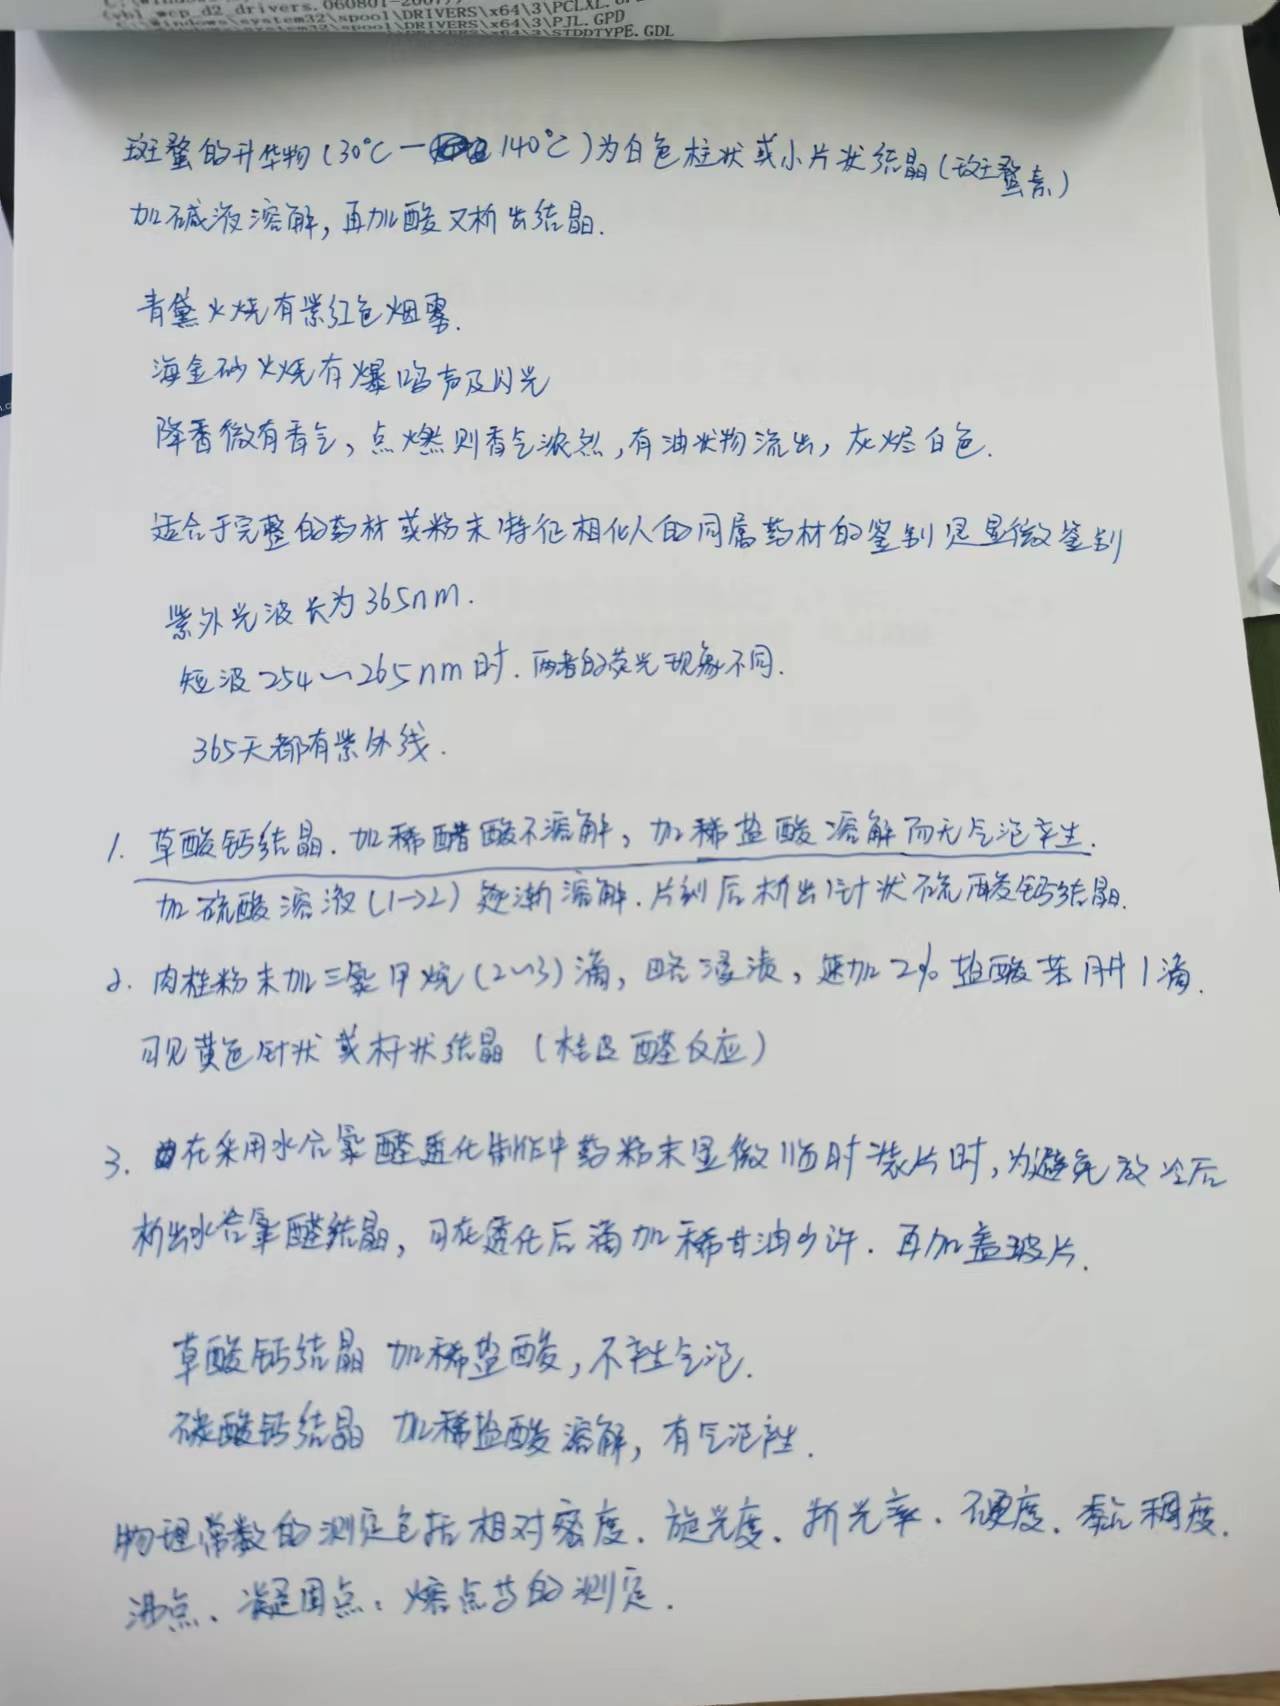 (vbl_wcp_d2_drivers.060801-2007))
C:\Windows\system32\spool\DRIVERS\x64\3\PCLXL.
\Windows\system32\spool\DRIVERS\x64\3\PJL.GPD
DRIVERS\x64\3\STDDTYPE.GDL
斑蝥的升华物(30℃—140℃)为白色柱状或小片状结晶(斑蝥素)
加碱液溶解,再加酸又析出结晶.
青黛火烧有紫红色烟雾.
海金砂火烧有爆鸣声及闪光
降香微有香气,点燃则香气浓烈,有油状物流出,灰烬白色.
适合于完整的药材或粉末特征相似的同属药材的鉴别是显微鉴别
紫外光波长为365nm.
短波254~265nm时.两者的荧光现象不同.
365天都有紫外线.
1. 草酸钙结晶.加稀醋酸不溶解,加稀盐酸溶解而无气泡产生.
加硫酸溶液(1→2)逐渐溶解.片刻后析出针状硫酸钙结晶.
2. 肉桂粉末加三氯甲烷(2~3)滴,略浸渍,速加2%盐酸苯肼1滴.
可见黄色针状或杆状结晶(桂皮醛反应)
3. 在采用水合氯醛透化制作中药粉末显微临时装片时,为避免放冷后
析出水合氯醛结晶,可在透化后滴加稀甘油少许.再加盖玻片.
草酸钙结晶 加稀盐酸,不产生气泡.
碳酸钙结晶 加稀盐酸溶解,有气泡产生.
物理常数的测定包括相对密度.旋光度.折光率.硬度.黏稠度.
沸点.凝固点.熔点等的测定.